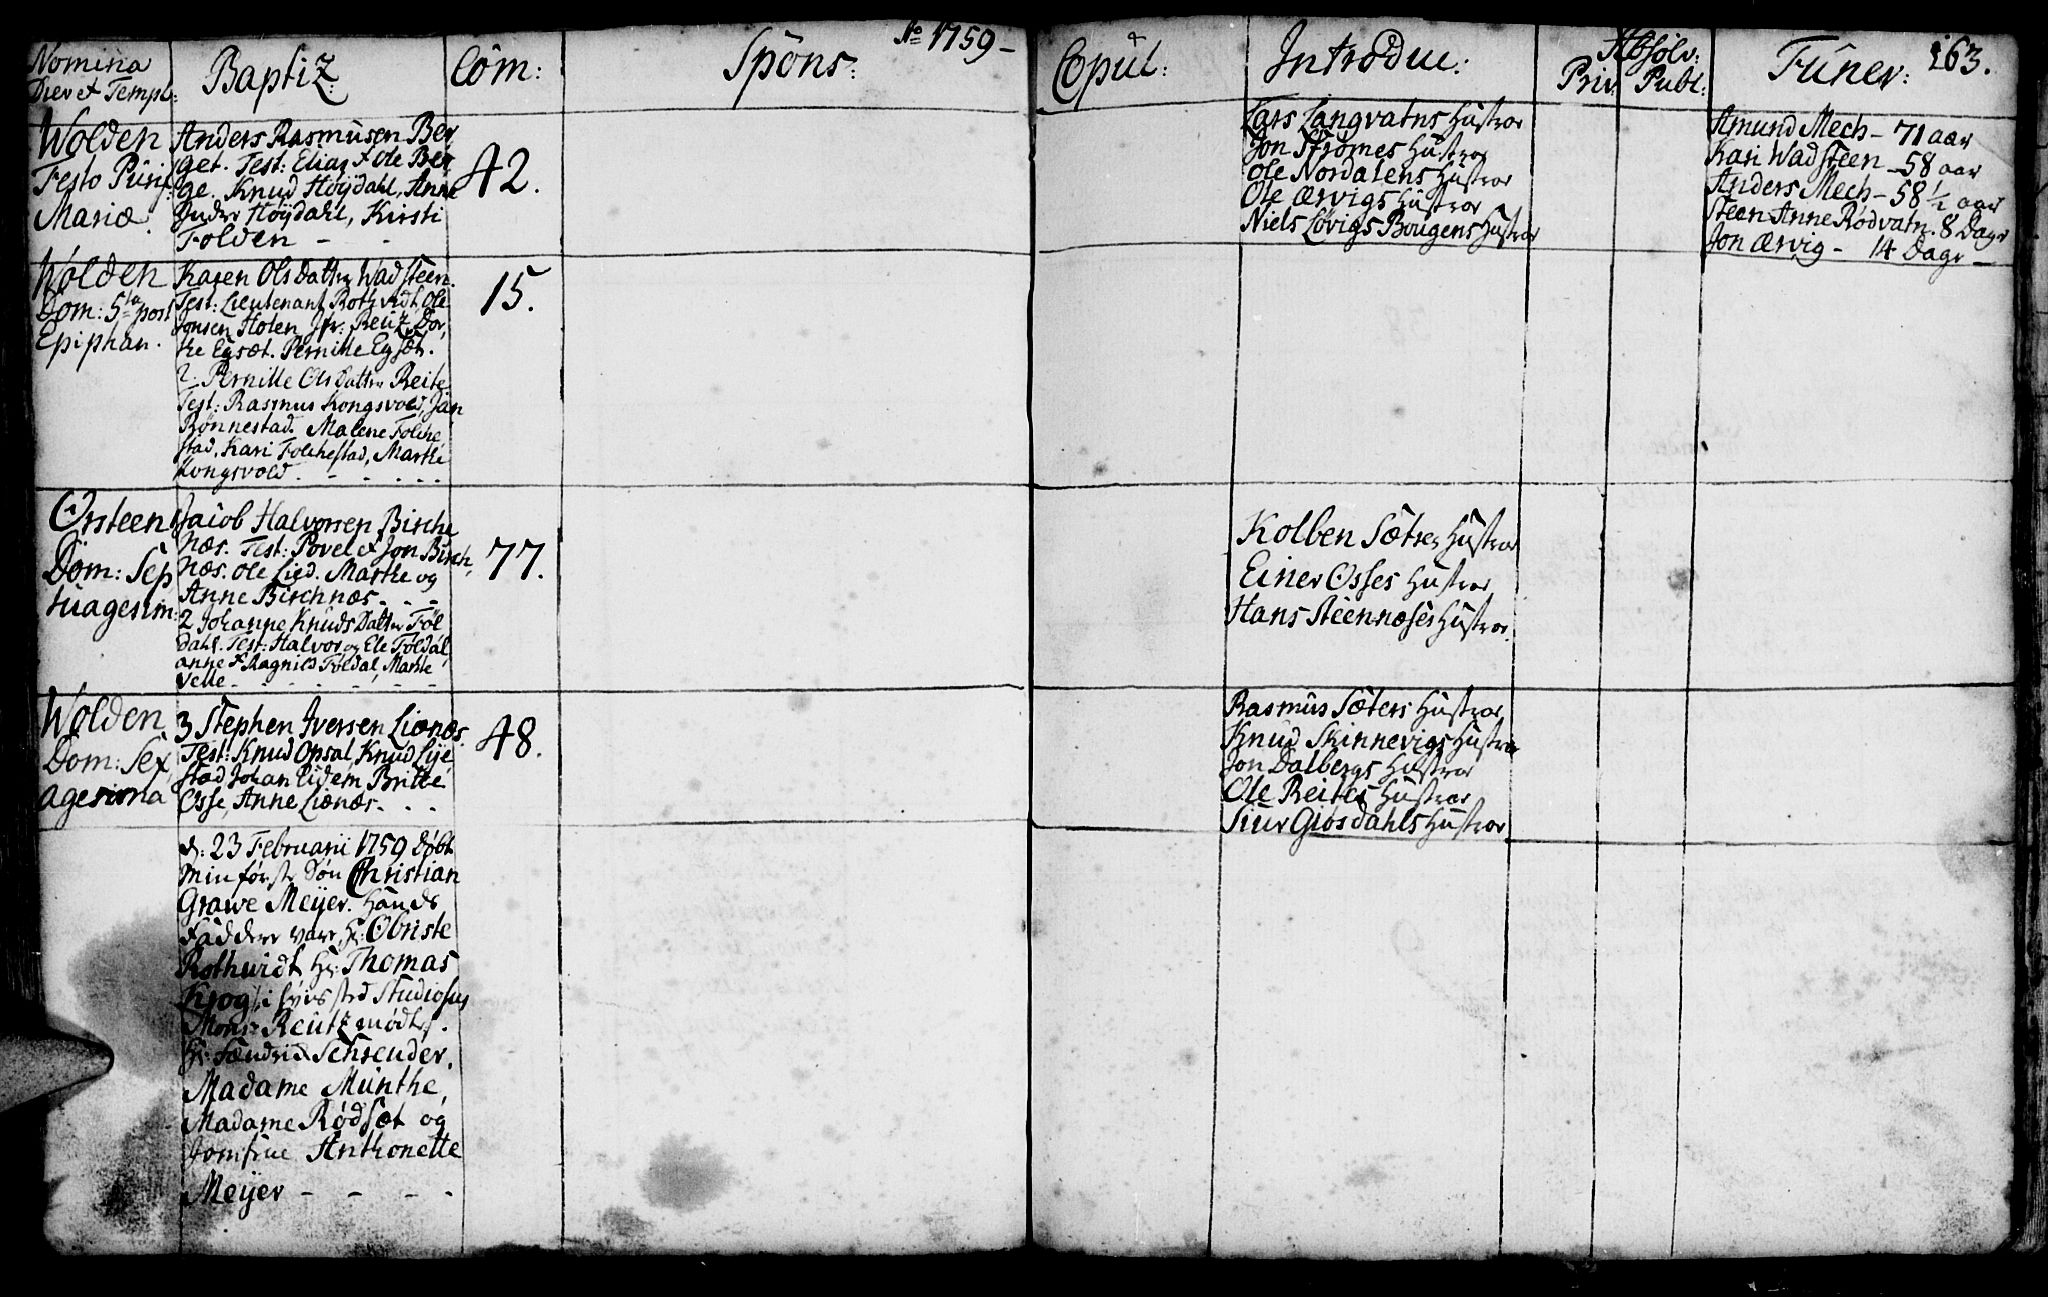 Ao 1759 -
163.
Nomina
Dier et Templ:
Baptiz:
Com:
Spons:
Copul:
Introduc:
Absolv:
Priv: Publ:
Funer:
Wolden
Festo Purif:
Mariæ.
Anders Rasmusen Ber
get. Test: Elias & Ole Ber
ge. Knud Høydahl, Anne
Høydahl, Kirsti
Folden - -
42.
Lars Langvatns Hustroe
Jon Strømes Hustroe
Ole Nordalens Hustroe
Ole Ærvigs Hustroe
Niels Løvigs Bougens Hustroe
Amund Mech - 71 aar
Kari Wadsteen - 58 aar
Anders Mech - 58 1/2 aar
Steen Anne Rødvatn. 8 Dage
Jon Ærvig - 14 Dage -
Wolden
Dom: 5ta post
Epiphan.
Karen Ols Datter Wadsteen.
Test: Lieutenant Rothvidt, Ole
Jonsen Holen Jfr: Reutz Dor,
the Egset. Pernille Egset.
2. Pernille Ols Datter Reite
Test: Rasmus Kongsvold, Jan
Rønnestad. Malene Folche
stad, Kari Folchestad, Marthe
Kongsvold. - - - - -
15.
Ørsteen
Dom: Sep
tuagesim:
Jacob Halvorsen Birche
næs. Test: Povel et Jon Birch,
næs. Ole Lied. Marthe og
Anne Birchnæs. - -
2 Johanne Knuds Datter Føl
dahl. Test: Halvor og Ele Føldal,
anne & Ragnild Føldal, Marthe
Velle - - - - - -
77.
Kolben Sætres Hustroe
Einer Osses Hustroe
Hans Steennæses Hustroe.
Wolden
Dom: Sex,
agesima
3 Stephen Iversen Lianæs.
Test: Knud Opsal, Knud Lye
stad Johan Eidem Britthe
Osse, Anne Lianæs. - -
48.
Rasmus Sæters Hustroe
Knud Skinnevigs Hustroe
Jon Dalbergs Hustroe
Ole Reites Hustroe
Siur Giøsdahls Hustroe
d: 23 Februarii 1759 døbt
min første Søn Christian
Grawe Meyer. Hands
Faddere vare, Hr: Obriste
Rothwidt Hr: Thomas
Krog, i sted Studiosus
Mons: Reutz
Hr: Schrender.
Madame Munthe,
Madame Rødsæt og
Jomfrue Anthonette
Meyer - - - -